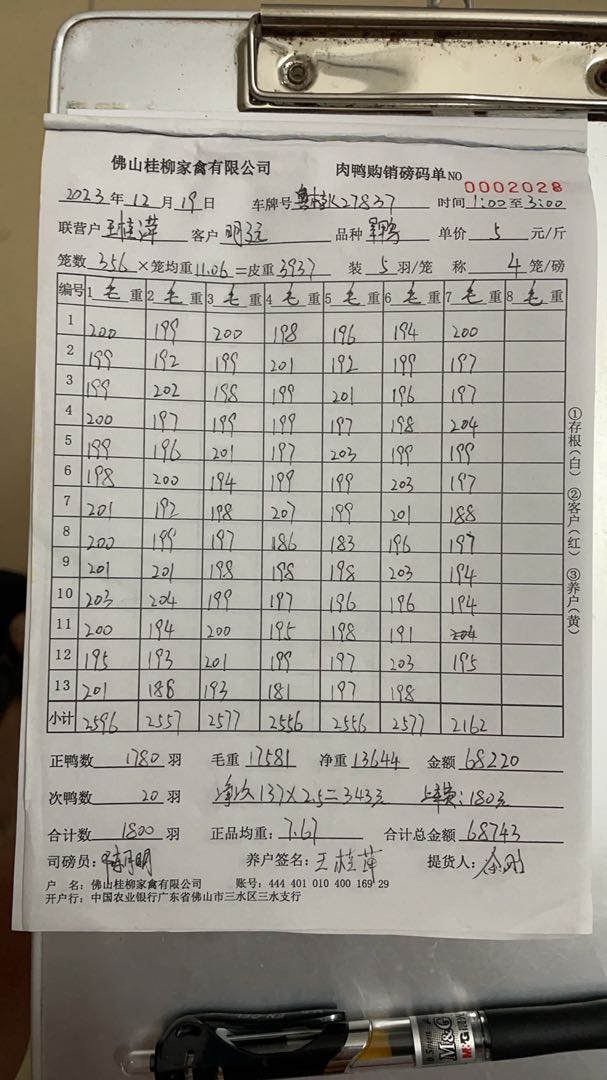 佛山桂柳家禽有限公司 肉鸭购销磅码单 NO 0002028
2023年12月19日 车牌号 27837 时间1:00至3:00
联营户 王桂萍 客户 明 品种 单价 5 元/斤
笼数 356 ×笼均重 11.06 =皮重 3937 装 5 羽/笼 称 4 笼/磅
编号 1 毛 重 2 毛 重 3 毛 重 4 毛 重 5 毛 重 6 毛 重 7 毛 重 8 毛 重
1 200 199 200 198 196 194 200
2 199 192 199 201 192 199 197
3 199 202 198 199 201 196 197
4 200 197 199 199 197 198 204
5 199 196 201 197 203 199 199
6 198 200 194 199 199 203 197
7 201 192 198 207 199 201 188
8 200 199 197 186 183 196 197
9 201 201 198 198 198 203 194
10 203 204 199 197 196 196 194
11 200 194 200 195 198 191 204
12 195 193 201 199 197 203 195
13 201 188 193 181 197 198
小计 2596 2557 2577 2556 2556 2577 2162
①存根(白) ②客户(红) ③养户(黄)
正鸭数 1780 羽 毛重 17581 净重 13644 金额 68220
次鸭数 20 羽 净次 137×2.5=343元 180元
合计数 1800 羽 正品均重: 7.67 合计总金额 68743
司磅员: 明 养户签名: 王桂萍 提货人:
户 名: 佛山桂柳家禽有限公司 账号: 444 401 010 400 169 29
开户行: 中国农业银行广东省佛山市三水区三水支行
M&G
M&G